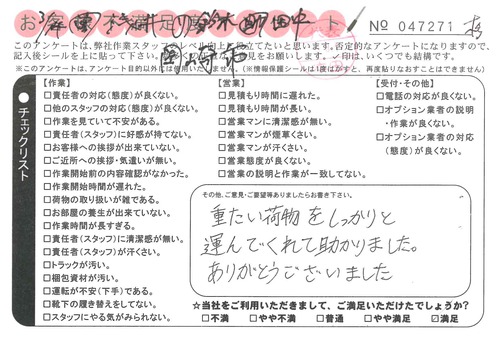 お客様満足度アンケート
No 047271
このアンケートは、弊社作業スタッフのレベル向上に役立てたいと思います。否定的なアンケートになりますので、
記入後シールを上に貼って下さい。
印は、いくつでも結構です。
※このアンケートは、アンケート目的以外には使用いたしません。(※情報保護シールは1度はがすと、再度貼りなおすことはできません)
チェックリスト
【作業】
□責任者の対応(態度)が良くない。
□他のスタッフの対応(態度)が良くない。
□作業を見ていて不安がある。
□責任者(スタッフ)に好感が持てない。
□お客様への挨拶が出来ていない。
□ご近所への挨拶・気遣いが無い。
□作業開始前の内容確認がなかった。
□作業開始時間が遅れた。
□荷物の取り扱いが雑である。
□お部屋の養生が出来ていない。
□作業時間が長すぎる。
□責任者(スタッフ)に清潔感が無い。
□責任者(スタッフ)が汗くさい。
□トラックが汚い。
□梱包資材が汚い。
□運転が不安(下手)である。
□靴下の履き替えをしてない。
□スタッフにやる気がみられない。
【営業】
□見積もり時間に遅れた。
□見積もり時間が長い。
□営業マンに清潔感が無い。
□営業マンが煙草くさい。
□営業マンが汗くさい。
□営業態度が良くない。
□営業の説明と作業が一致してない。
【受付・その他】
□電話の対応が良くない。
□オプション業者の説明
・作業が良くない。
□オプション業者の対応
(態度)が良くない。
その他、ご意見・ご要望等ありましたらお書き下さい。
重たい荷物をしっかりと
運んでくれて助かりました。
ありがとうございました
☆当社をご利用いただきまして、ご満足いただけたでしょうか?
□不満 □やや不満 □普通 □やや満足 ☑満足